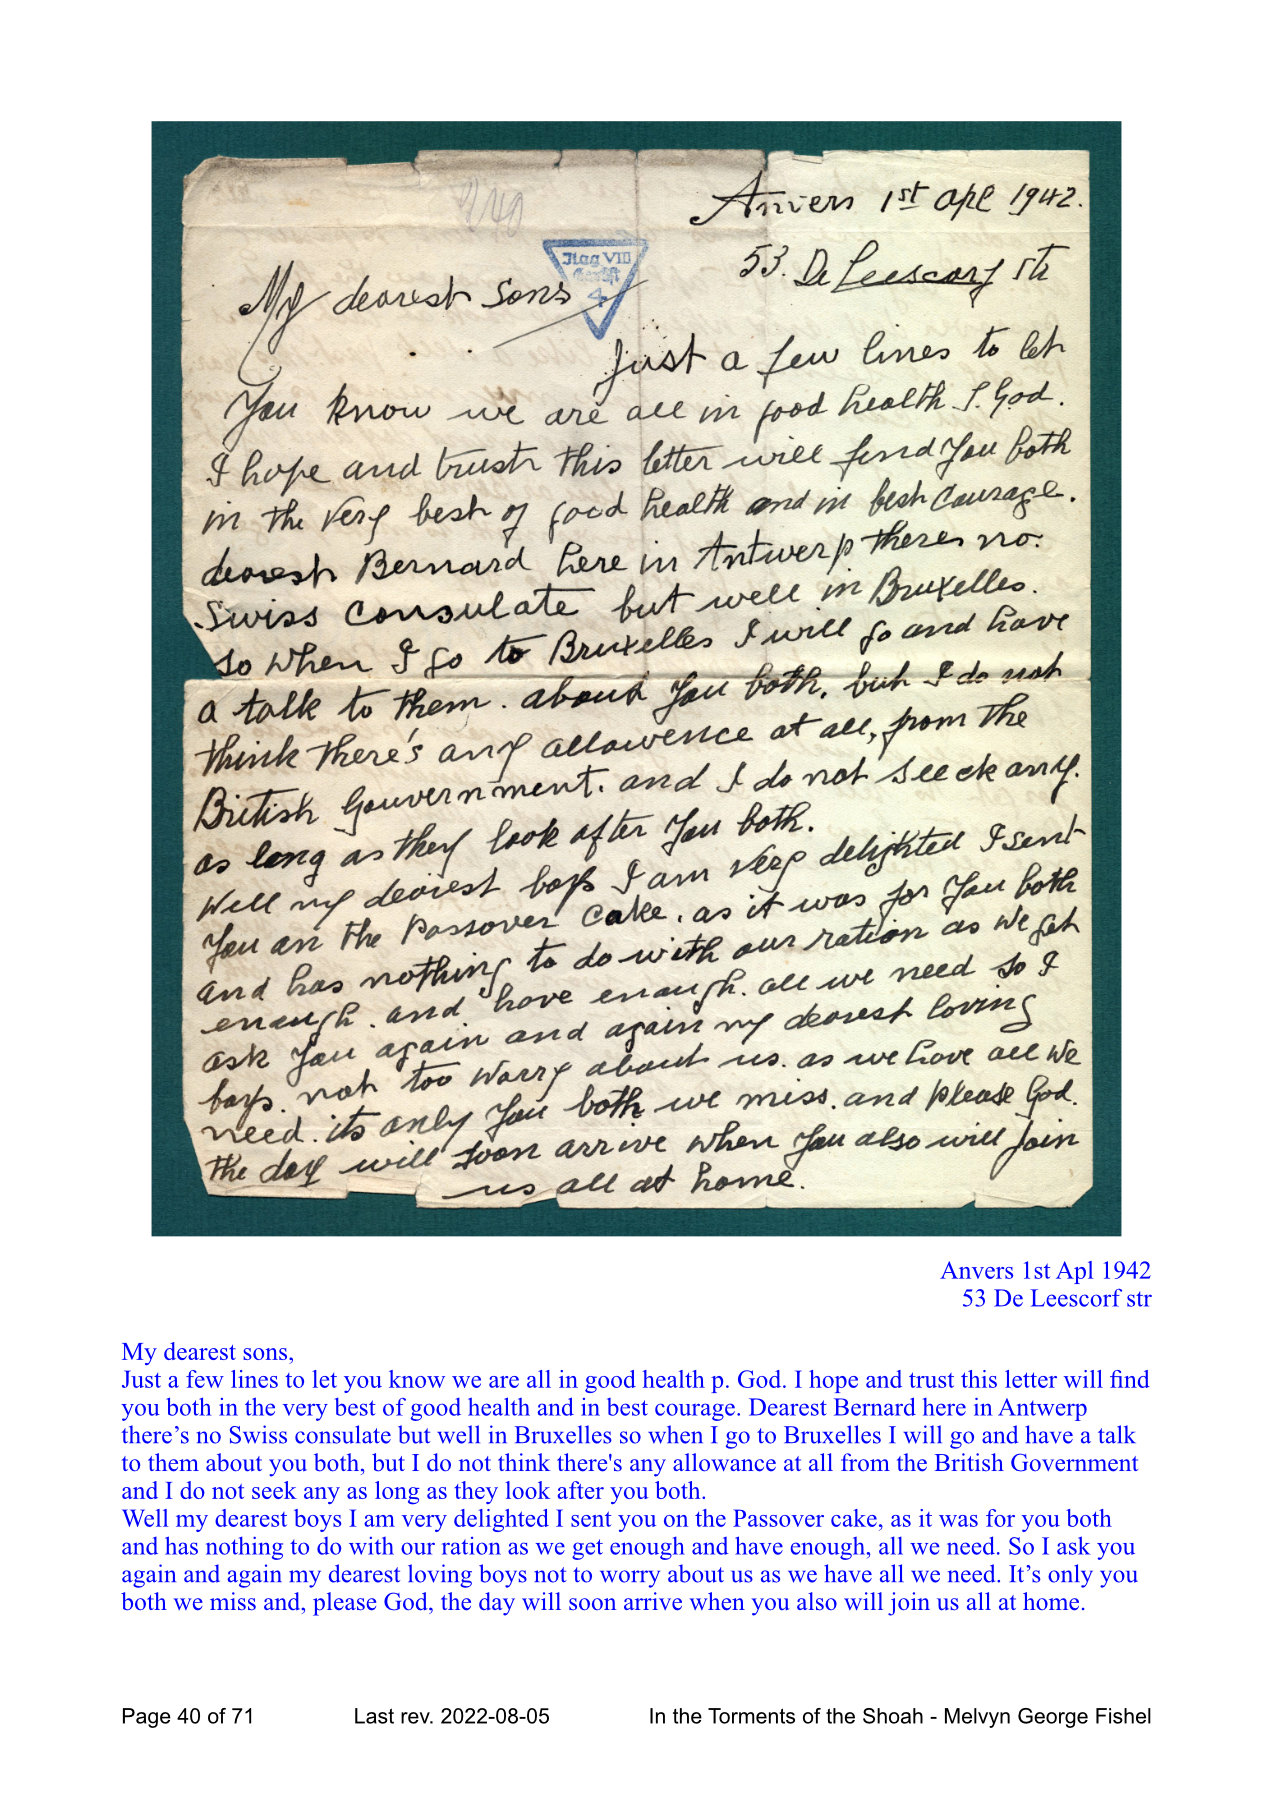 Anvers 1st Apl 1942.
53. De Leescorf str
Ilag VIII
4
My dearest Sons
Just a few lines to let
You know we are all in good health T. God.
I hope and trust this letter will find You both
in the very best of good health and in best courage.
dearest Bernard here in Antwerp theres no.
Swiss Consulate but well in Bruxelles.
so when I go to Bruxelles I will go and have
a talk to them. about You both, but I do not
think there's any allowence at all, from the
British Gouvernment. and I do not seeck any.
as long as they look after You both.
Well my dearest boys I am very delighted I sent
You an the Passover Cake. as it was for You both
and has nothing to do with our ration as we get
enough. and have enough. all we need so I
ask You again and again my dearest loving
boys. not too worry about us. as we have all we
need. its only You both we miss. and please God.
the day will soon arrive when You also will join
us all at home.
Anvers 1st Apl 1942
53 De Leescorf str
My dearest sons,
Just a few lines to let you know we are all in good health p. God. I hope and trust this letter will find
you both in the very best of good health and in best courage. Dearest Bernard here in Antwerp
there’s no Swiss consulate but well in Bruxelles so when I go to Bruxelles I will go and have a talk
to them about you both, but I do not think there's any allowance at all from the British Government
and I do not seek any as long as they look after you both.
Well my dearest boys I am very delighted I sent you on the Passover cake, as it was for you both
and has nothing to do with our ration as we get enough and have enough, all we need. So I ask you
again and again my dearest loving boys not to worry about us as we have all we need. It’s only you
both we miss and, please God, the day will soon arrive when you also will join us all at home.
Page 40 of 71 Last rev. 2022-08-05 In the Torments of the Shoah - Melvyn George Fishel